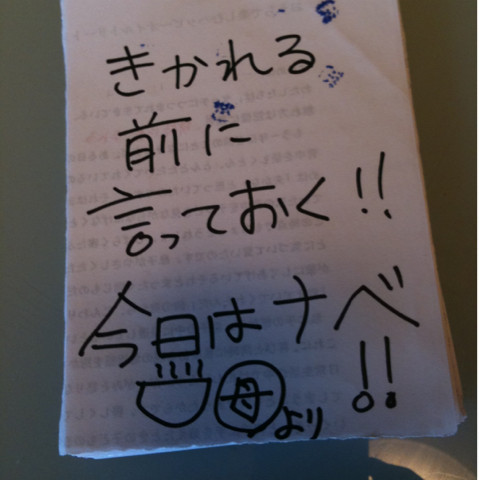 きかれる
前に
言っておく!!
今日はナベ!!
母より